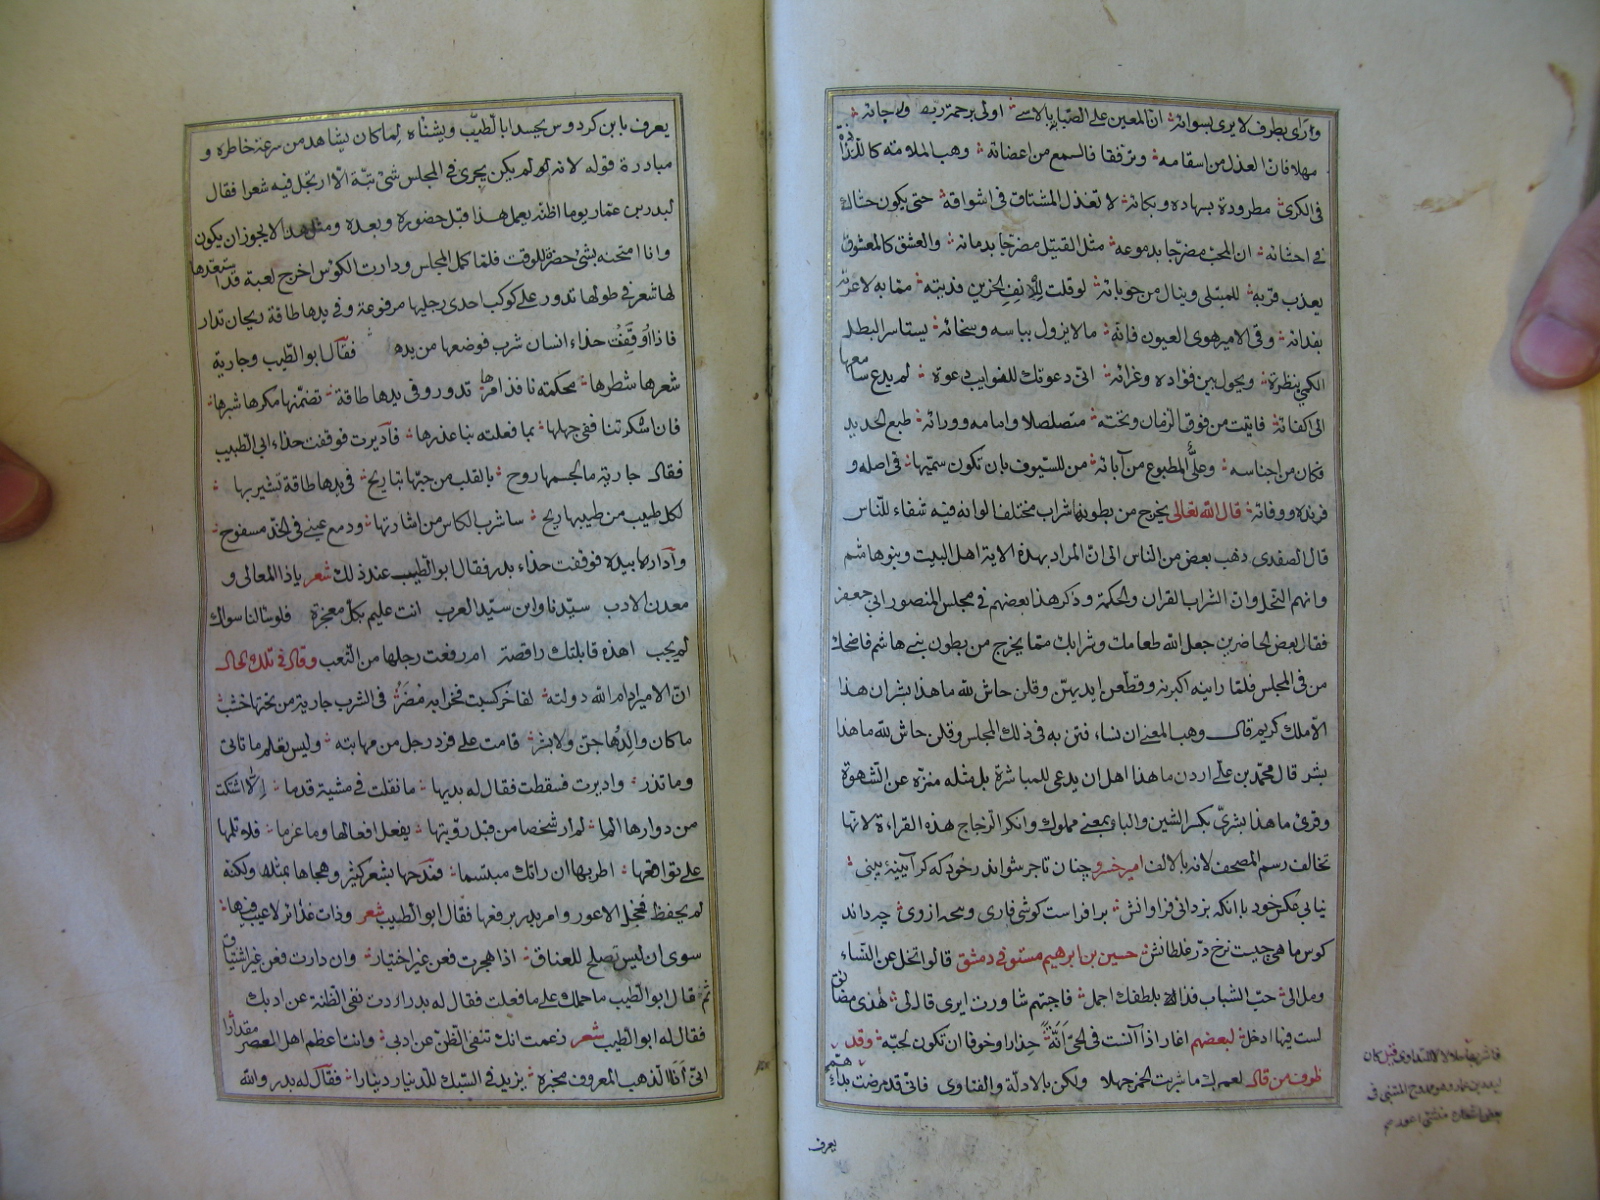 وارى بطرف لا يرى بسوائه ان المعين على الصبابة بالاسى اولى برحمة ربها
مهلا فان العذل من اسقامه وترفقا فالسمع من اعضائه وهب الملامة كاللذاذة
فى الكرى مطرودة بسهاده وبكائه لا تعذل المشتاق فى اشواقه حتى يكون حشاك
فى احشائه ان المحب مضرجا بدموعه مثل القتيل مضرجا بدمائه والعشق كالمعشوق
يعذب قربه للمبتلى وينال من حوبائه لو قلت للدنف الحزين فديته مما به لاغرته
بفدائه وقى الامير هوى العيون فانه ما لا يزول بباسه وسخائه يستاسر البطل
الكمى بنظرة ويحول بين فؤاده وعزائه انى دعوتك للنوايب دعوة لم يدع سامعها
الى اكفائه فاتيت من فوق الزمان وتحته متصلصلا وامامه وورائه طبع الحديد
فكان من اجناسه وعلى المطبوع من آبائه من للسيوف بان تكون سميها فى اصله و
فرنده ووفائه قال الله تعالى يخرج من بطونها شراب مختلف الوانه فيه شفاء للناس
قال الصفدى ذهب بعض من الناس الى ان المراد بهذه الاية اهل البيت وبنو هاشم
وانهم النحل وان الشراب القران والحكمة وذكر هذا بعضهم فى مجلس المنصور ابى جعفر
فقال بعض الحاضرين جعل الله طعامك وشرابك مما يخرج من بطون بنى هاشم فاضحك
من فى المجلس فلما راينه اكبرنه وقطعن ايديهن وقلن حاش لله ما هذا بشرا ان هذا
الا ملك كريم قال وهب المعنى ان نساء فتن به فى ذلك المجلس وقلن حاش لله ما هذا
بشر قال محمد بن على اردن ما هذا اهل ان يدعى للمباشرة بل مثله منزه عن الشهوة
وقرئ ما هذا بشرى بكسر الشين والباء بمعنى مملوك وانكر الزجاج هذه القراءة لانها
تخالف رسم المصحف لانه بالالف امير خسرو چنان تاجر شواندر خود كه كر آيينه بينى
نيابى عكس خود با انكه بزدائى فراوانش برافراست
كوس ماهى چيست نرخ در غلطانش حسين بن ابرهيم مستوفى دمشق قالوا تخل عن النساء
ومل الى حب الشباب فذا بلطفك اجمل فاجبتهم شاورت ايرى قال لى هذى مضائق
لست فيها ادخل لبعضهم اغار اذا آنست فى الحى انة حذارا وخوفا ان تكون لحبه وقد
ظرف من قال لعمرك ما شربت الخمر جهلا ولكن بالادلة والفتاوى فانى قد مرضت بداء هم
قبل كان
يعرف
يعرف بابن كردوس يحسد ابا الطيب ويشناه لما كان يشاهد من سرعة خاطره و
مبادرة قوله لانه لو لم يكن يجرى فى المجلس شئ بتة الا ارتجل فيه شعرا فقال
لبدر بن عمار يوما اظنه يعمل هذا قبل حضوره وبعده ومثل هذا لا يجوز ان يكون
وانا امتحنه بشئ حضرة للوقت فلما كمل المجلس ودارت الكوس اخرج لعبة قد استعدها
لها شعر فى طولها تدور على كوكب احدى رجليها مرفوعة وفى يدها طاقة ريحان تدار
فاذا اوقفت حذاء انسان شرب فوضعها من يده فقال ابو الطيب وجارية
شعرها شطرها محكمة نافذ امرها تدور وفى يدها طاقة تضمنها مكرها شبرها
فان اسكرتنا ففى جهلها بما فعلته بنا عذرها فاديرت فوقفت حذاء ابى الطيب
فقال جارية ما لجسمها روح بالقلب من حبها تباريح فى يدها طاقة تشير بها
لكل طيب من طيبها ريح ساشرب الكاس من اشارتها ودمع عينى فى الخد مسفوح
وادارها بيده فوقفت حذاء بدر فقال ابو الطيب عند ذلك شعر يا ذا المعالى و
معدن الادب سيدنا وابن سيد العرب انت عليم بكل معجزة فلو سالنا سواك
لم يجب اهذه قابلتك راقصة ام رفعت رجلها من التعب وقال فى تلك الحال
ان الامير ادام الله دولته لفاخر كسبت فخرا به مضر فى الشرب جارية من تحتها خشب
ما كان والدها جن ولا بشر قامت على فرد رجل من مهابته وليس تعلم ما تاتى
وما تذر واديرت فسقطت فقال له بديها ما نقلت فى مشية قدما الا اشتكت
من دوارها الما لم ار شخصا من قبل رؤيتها يفعل افعالها وما عزما فلا تلمها
على تواقعها اطربها ان راتك مبتسما فمدحها بشعر كثير وهجاها بمثله ولكنه
لم يحفظ فخجل الاعور وامر بدر برفعها فقال ابو الطيب شعر وذات غدائر لا عيب فيها
سوى ان ليس تصلح للعناق اذا هجرت فعن غير اختيار وان دارت فعن غير اشتياق
ثم قال ابو الطيب ما حملك على ما فعلت فقال له بدر اردت نفى الظنة عن ادبك
فقال له ابو الطيب شعر زعمت انك تنفى الظن عن ادبى وانت اعظم اهل العصر مقدارا
انى انا الذهب المعروف مخبره يزيد فى السبك للدينار دينارا فقال له بدر والله